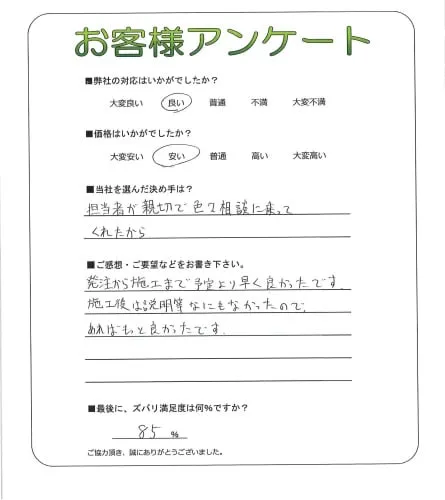 お客様アンケート
■弊社の対応はいかがでしたか？
大変良い 良い 普通 不満 大変不満
■価格はいかがでしたか？
大変安い 安い 普通 高い 大変高い
■当社を選んだ決め手は？
担当者が親切で色々相談に乗って
くれたから
■ご感想・ご要望などをお書き下さい。
発注から施工まで予定より早く良かったです。
施工後は説明等なにもなかったので、
あればもっと良かったです。
■最後に、ズバリ満足度は何％ですか？
85 %
ご協力頂き、誠にありがとうございました。